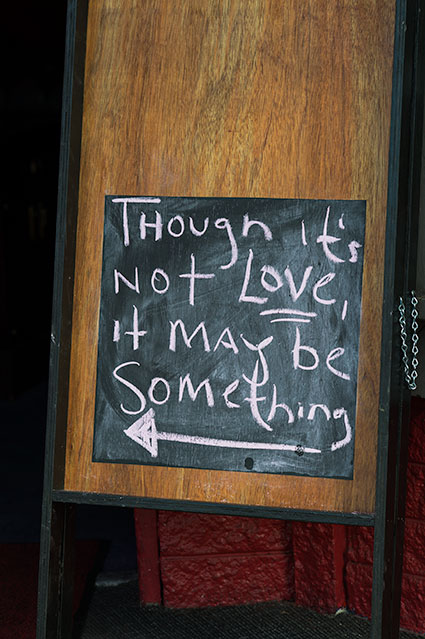 Though it's
not Love,
it may be
Something